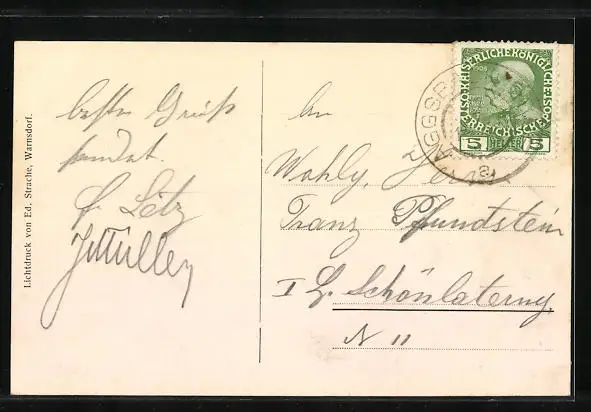 Lichtdruck von Ed. Strache, Warnsdorf.
beste Grüße
sendet
F. Leitz
J Müller
An
Wohlg. Herrn
Franz Pfundstein
I Schönlaterng
N 11
KAISERLICHE KÖNIGLICHE
ÖSTERREICHISCHE
5 HELLER 5
AGGSB